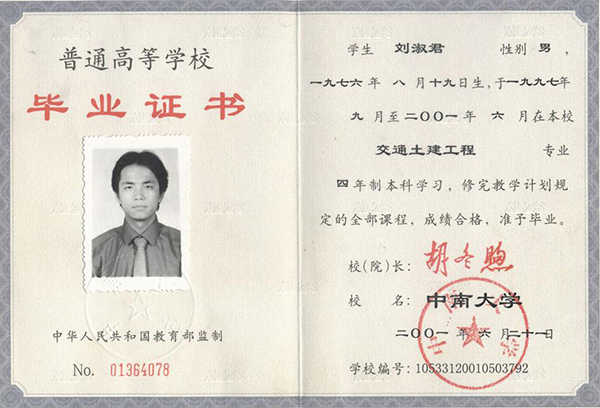 普通高等学校
毕业证书
中华人民共和国教育部监制
No. 01364078
学生 刘淑君 性别 男，
一九七六年 八 月 十九日生，于一九九七年
九 月至二〇〇一年 六 月在本校
交通土建工程 专业
四年制本科学习，修完教学计划规
定的全部课程，成绩合格，准予毕业。
校(院)长： 胡冬煦
校 名： 中南大学
二〇〇一 年 六 月二十一日
学校编号：10533120010503792